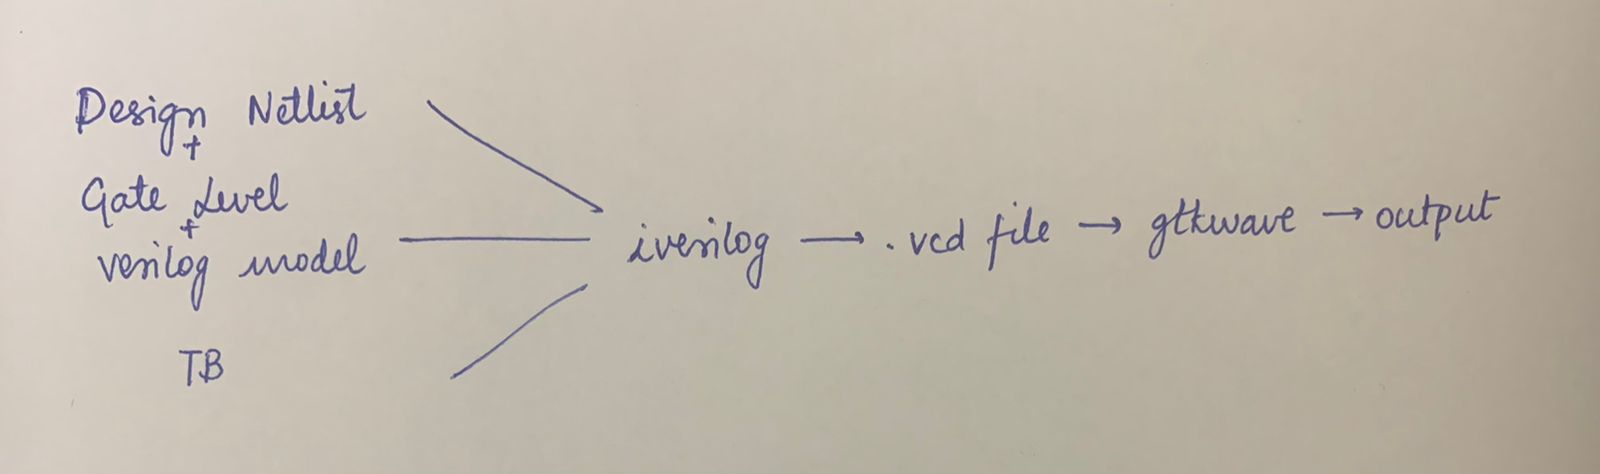 Design Netlist
+
Gate Level
+
verilog model
TB
iverilog → .vcd file → gtkwave → output